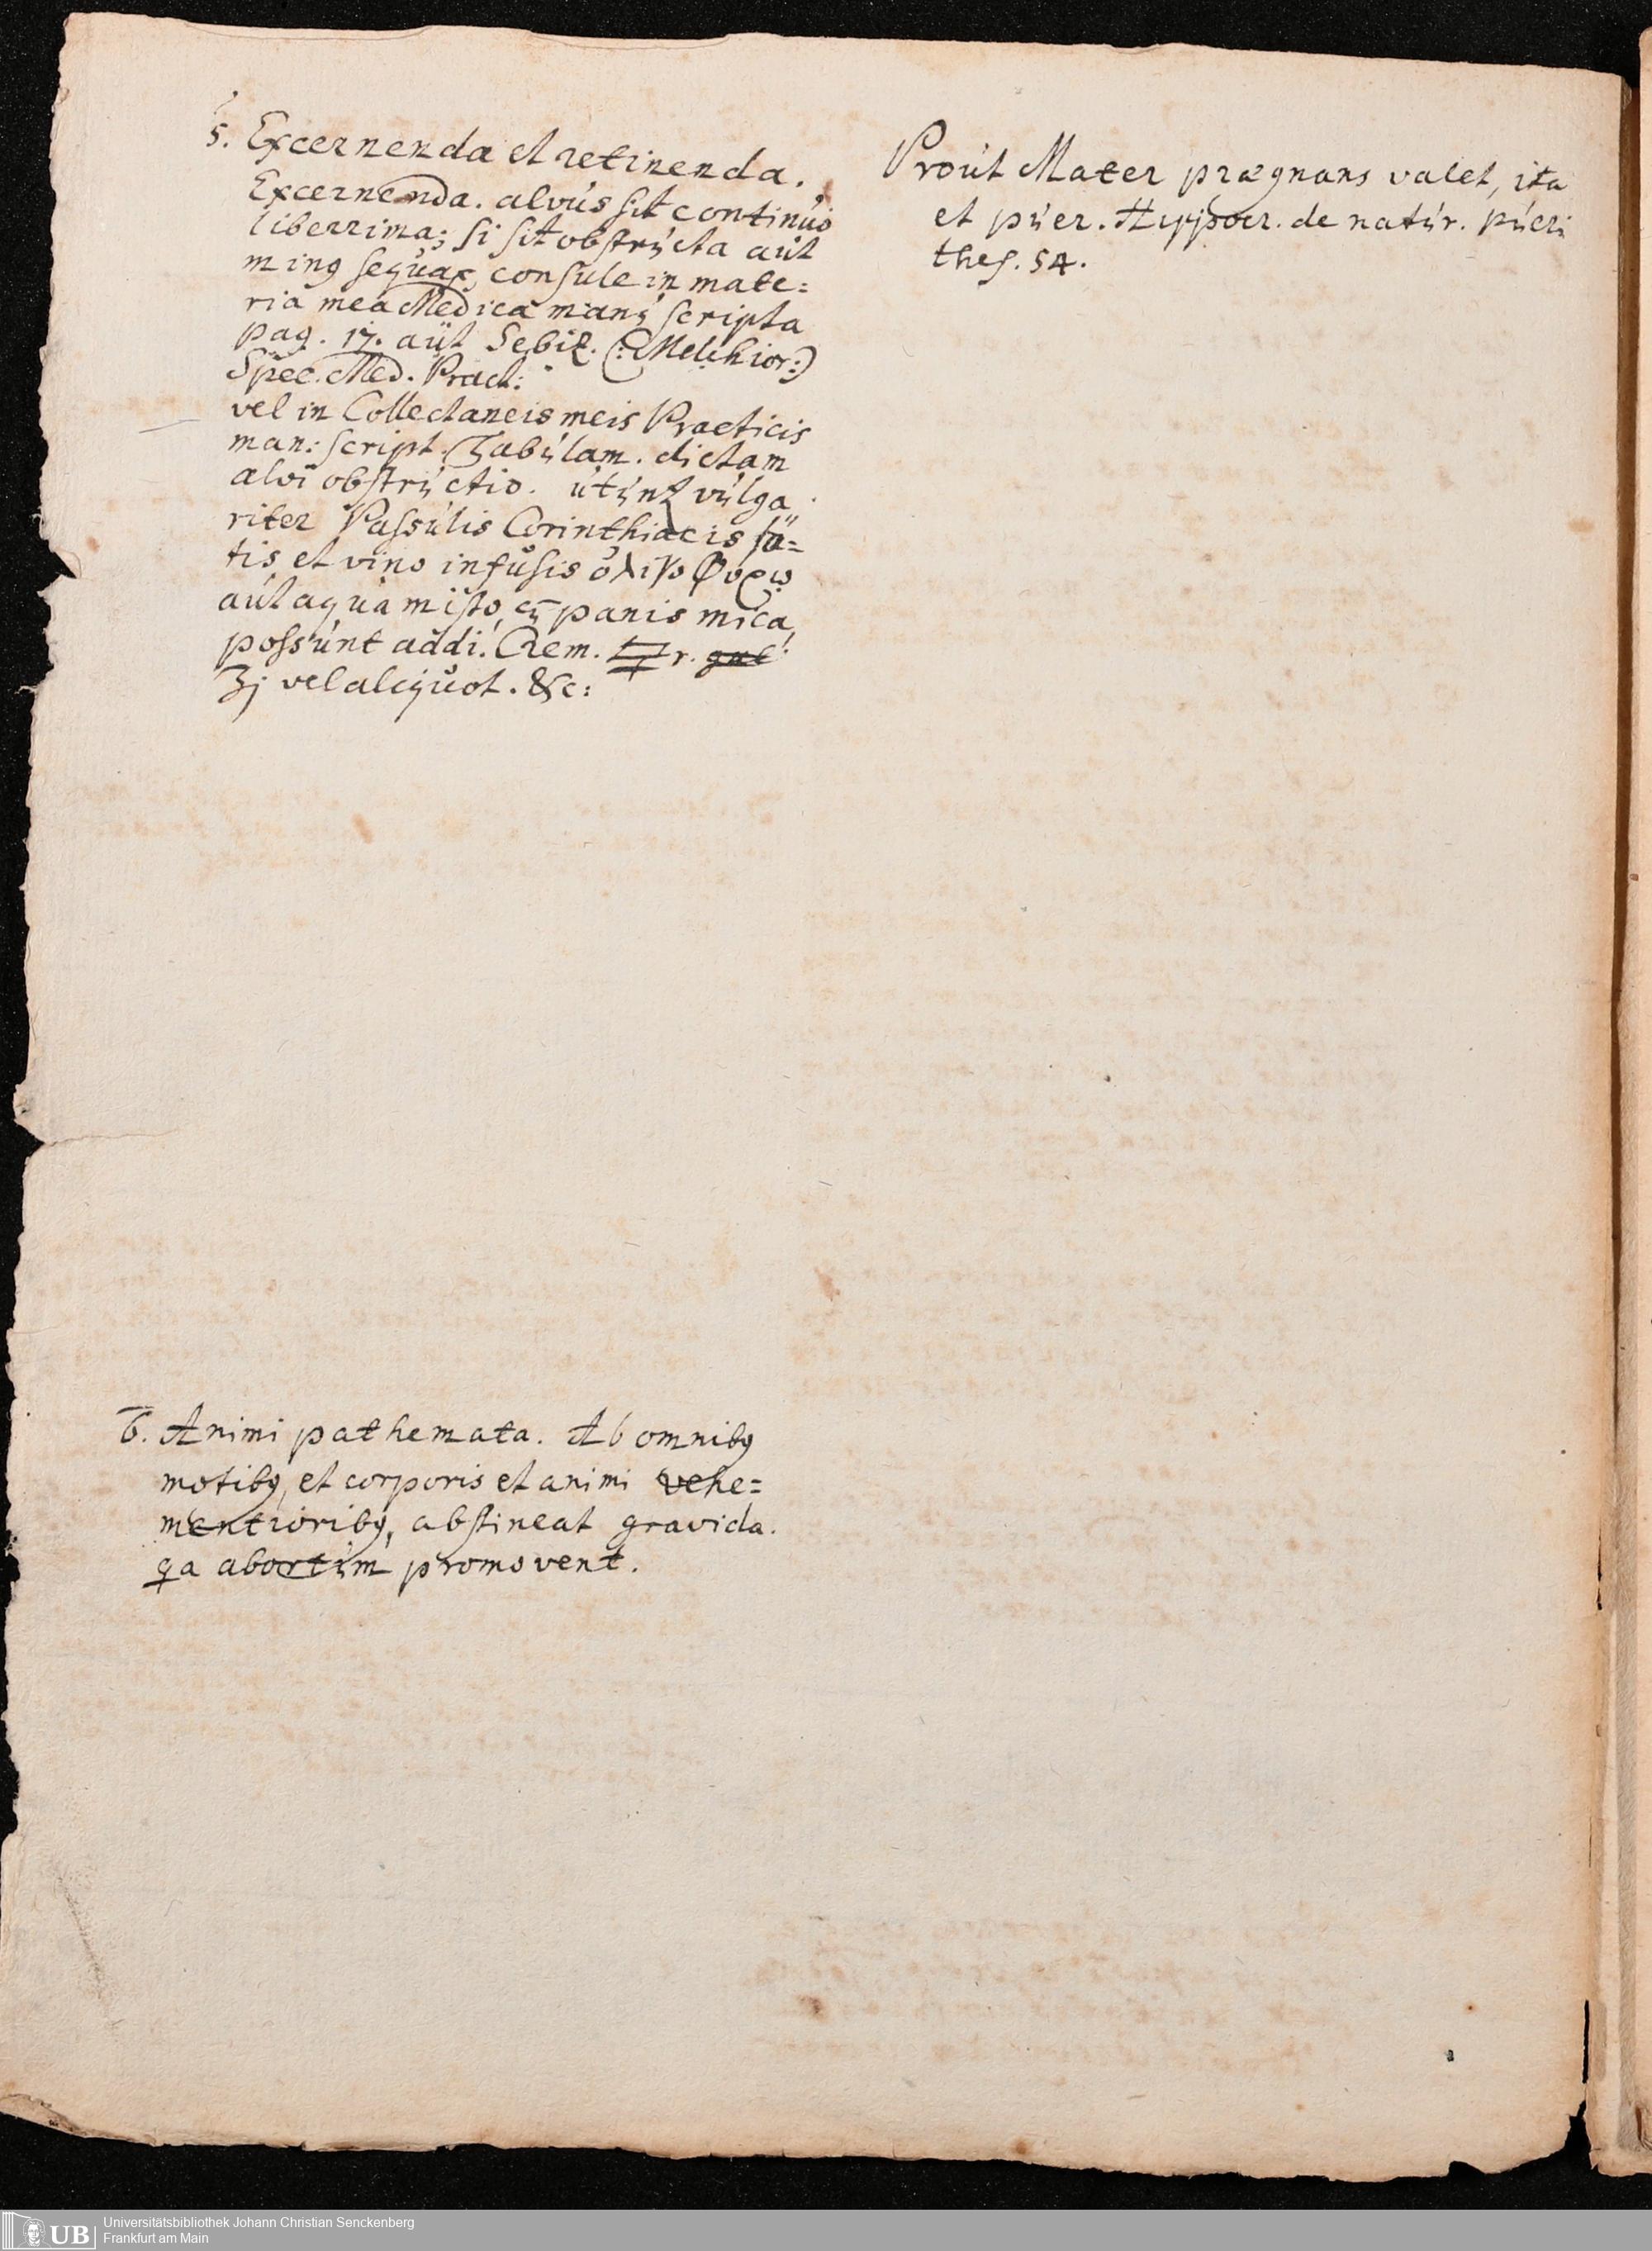 5. Excernenda et retinenda.
Excernenda. alvus sit continuò
liberrima; si sit obstructa aut
ming sequax, consule in mate=
ria mea Medica manu scripta
pag. 17. aut Sebiz. (: Melchior:)
Spec. Med. Pract:
vel in Collectaneis meis Practicis
man: script. Tabulam. dictam
alvi obstructio. utunt vulga
riter Passulis Corinthiacis
tis et vino infusis ὀλιγοφόρῳ
aut aqua misto, cū panis mica,
possunt addi. Crem. 🜿r.
ʒj vel aliquot. &c:
6. Animi pathemata. Ab omnibꝫ
motibꝫ, et corporis et animi vehe=
mentioribꝫ, abstineat gravida.
qa abortum promovent.
Prout Mater prægnans valet, ita
et puer. Hippocr. de natur. pueri
thes. 54.
UB
Universitätsbibliothek Johann Christian Senckenberg
Frankfurt am Main